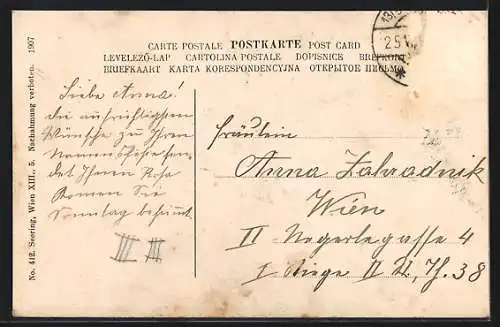 CARTE POSTALE POSTKARTE POST CARD
LEVELEZŐ-LAP CARTOLINA POSTALE DOPISNICE BREFKORT
BRIEFKAART KARTA KORESPONDENCYJNA ОТКРЫТОЕ ПИСЬМО
No. 412. Seering, Wien XIII., 5. Nachahmung verboten. 1907
Liebe Anna!
die aufrichtigsten
Wünsche zu Ihren
Namensfeste sen-
det Ihnen
Komen Sie
Sonntag bestimmt
III III
Fräulein
Anna Zahradnik
Wien
II Negerlegasse 4
I Stiege II St, Th. 38